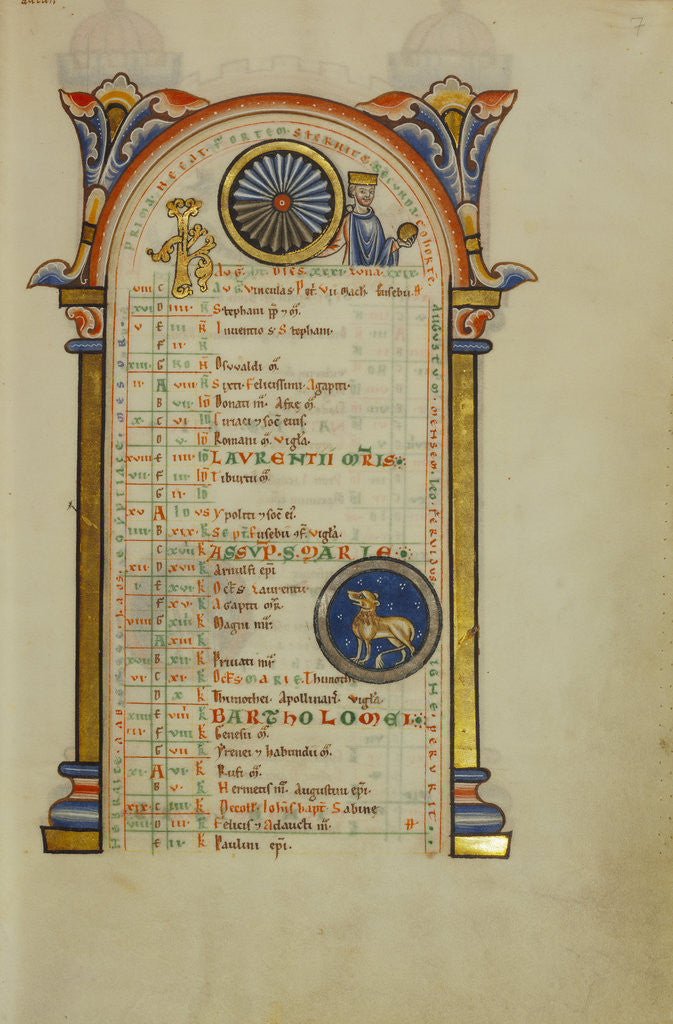 7
PRIMA NECAT FORTEM STERNITQ SECUNDA COHORTE
K
AVG. ht dies xxxi Luna xxix
viii C AVG. Vinculas Pet. vii mach Eusebii
xvi D iiii N Stephani pp ⁊ m.
v E iii N Inventio s Stephani.
F ii N
xiii G No N Osvvaldi m.
ii A viii N Sixti. Felicissimi. Agapiti.
B vii ID Donati m. Afre m.
x C vi ID Ciriaci ⁊ soc eius.
D v ID Romani m. Vigla.
xviii E iiii ID LAVRENTII MRIS
vii F iii ID Tiburtii m.
G ii ID
xv A IDVS Ypoliti ⁊ soc ei.
iiii B xix K Sept. Eusebii cf. Vigla.
C xviii K ASSVP. S. MARIE
xii D xvii K Arnulfi epi
i E xvi K Octs Laurentii
F xv K Agapiti mr.
viiii G xiiii K Magni mr.
A xiii K
xvii B xii K Privati mr
vi C xi K Octs MARIE. Thimothe
D x K Thimothei Apollinari. Vigla
xiiii E viiii K BARTHOLOMEI
iii F viii K Genesii m.
G vii K Yrenei ⁊ habundii m.
xi A vi K Rufi m.
B v K Hermetis m. Augustini epi.
xix C iiii K Decoll. Iohis bapt. Sabine
viii D iii K Felicis ⁊ Adaucti m.
E ii K Paulini epi.
AVGVSTVM MENSEM LEO FERVIDUS IGNE PERURIT
HEBRAICE AAB EGYPTIACE MESOR